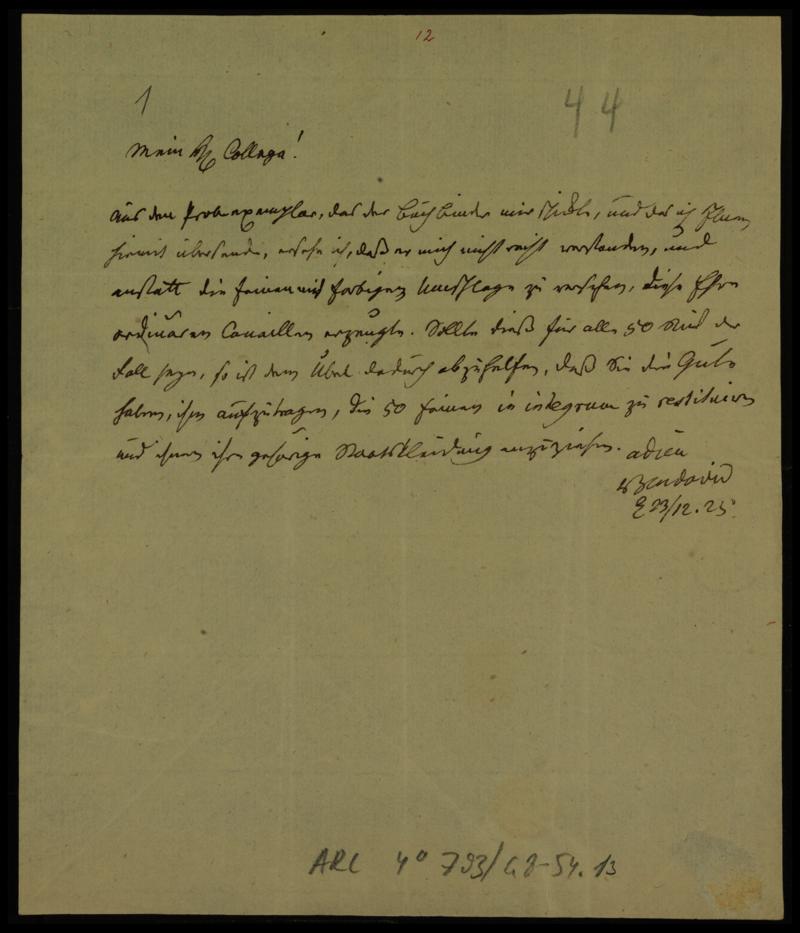 12
1
44
Mein H Collega!
Aus dem Probeexemplar, das der Buchbinder mir schickte, und das ich Ihnen
hiermit übersende, ersehe ich, daß er mich nicht recht verstanden, und
anstatt die feinen mit farbigem Umschlage zu versehen, diese Ehre
ordinären Canaillen erzeugte. Sollte dieß für alle 50 Stück der
Fall seyn, so ist dem Übel dadurch abzuhelfen, daß Sie die Güte
haben, ihm aufzutragen, die 50 feinen in integrum zu restituiren
und ihnen ihre gehörige Staatskleidung anzuziehen. adieu
LBendavid
23/12.25
ARC 4° 793/G8-54.13